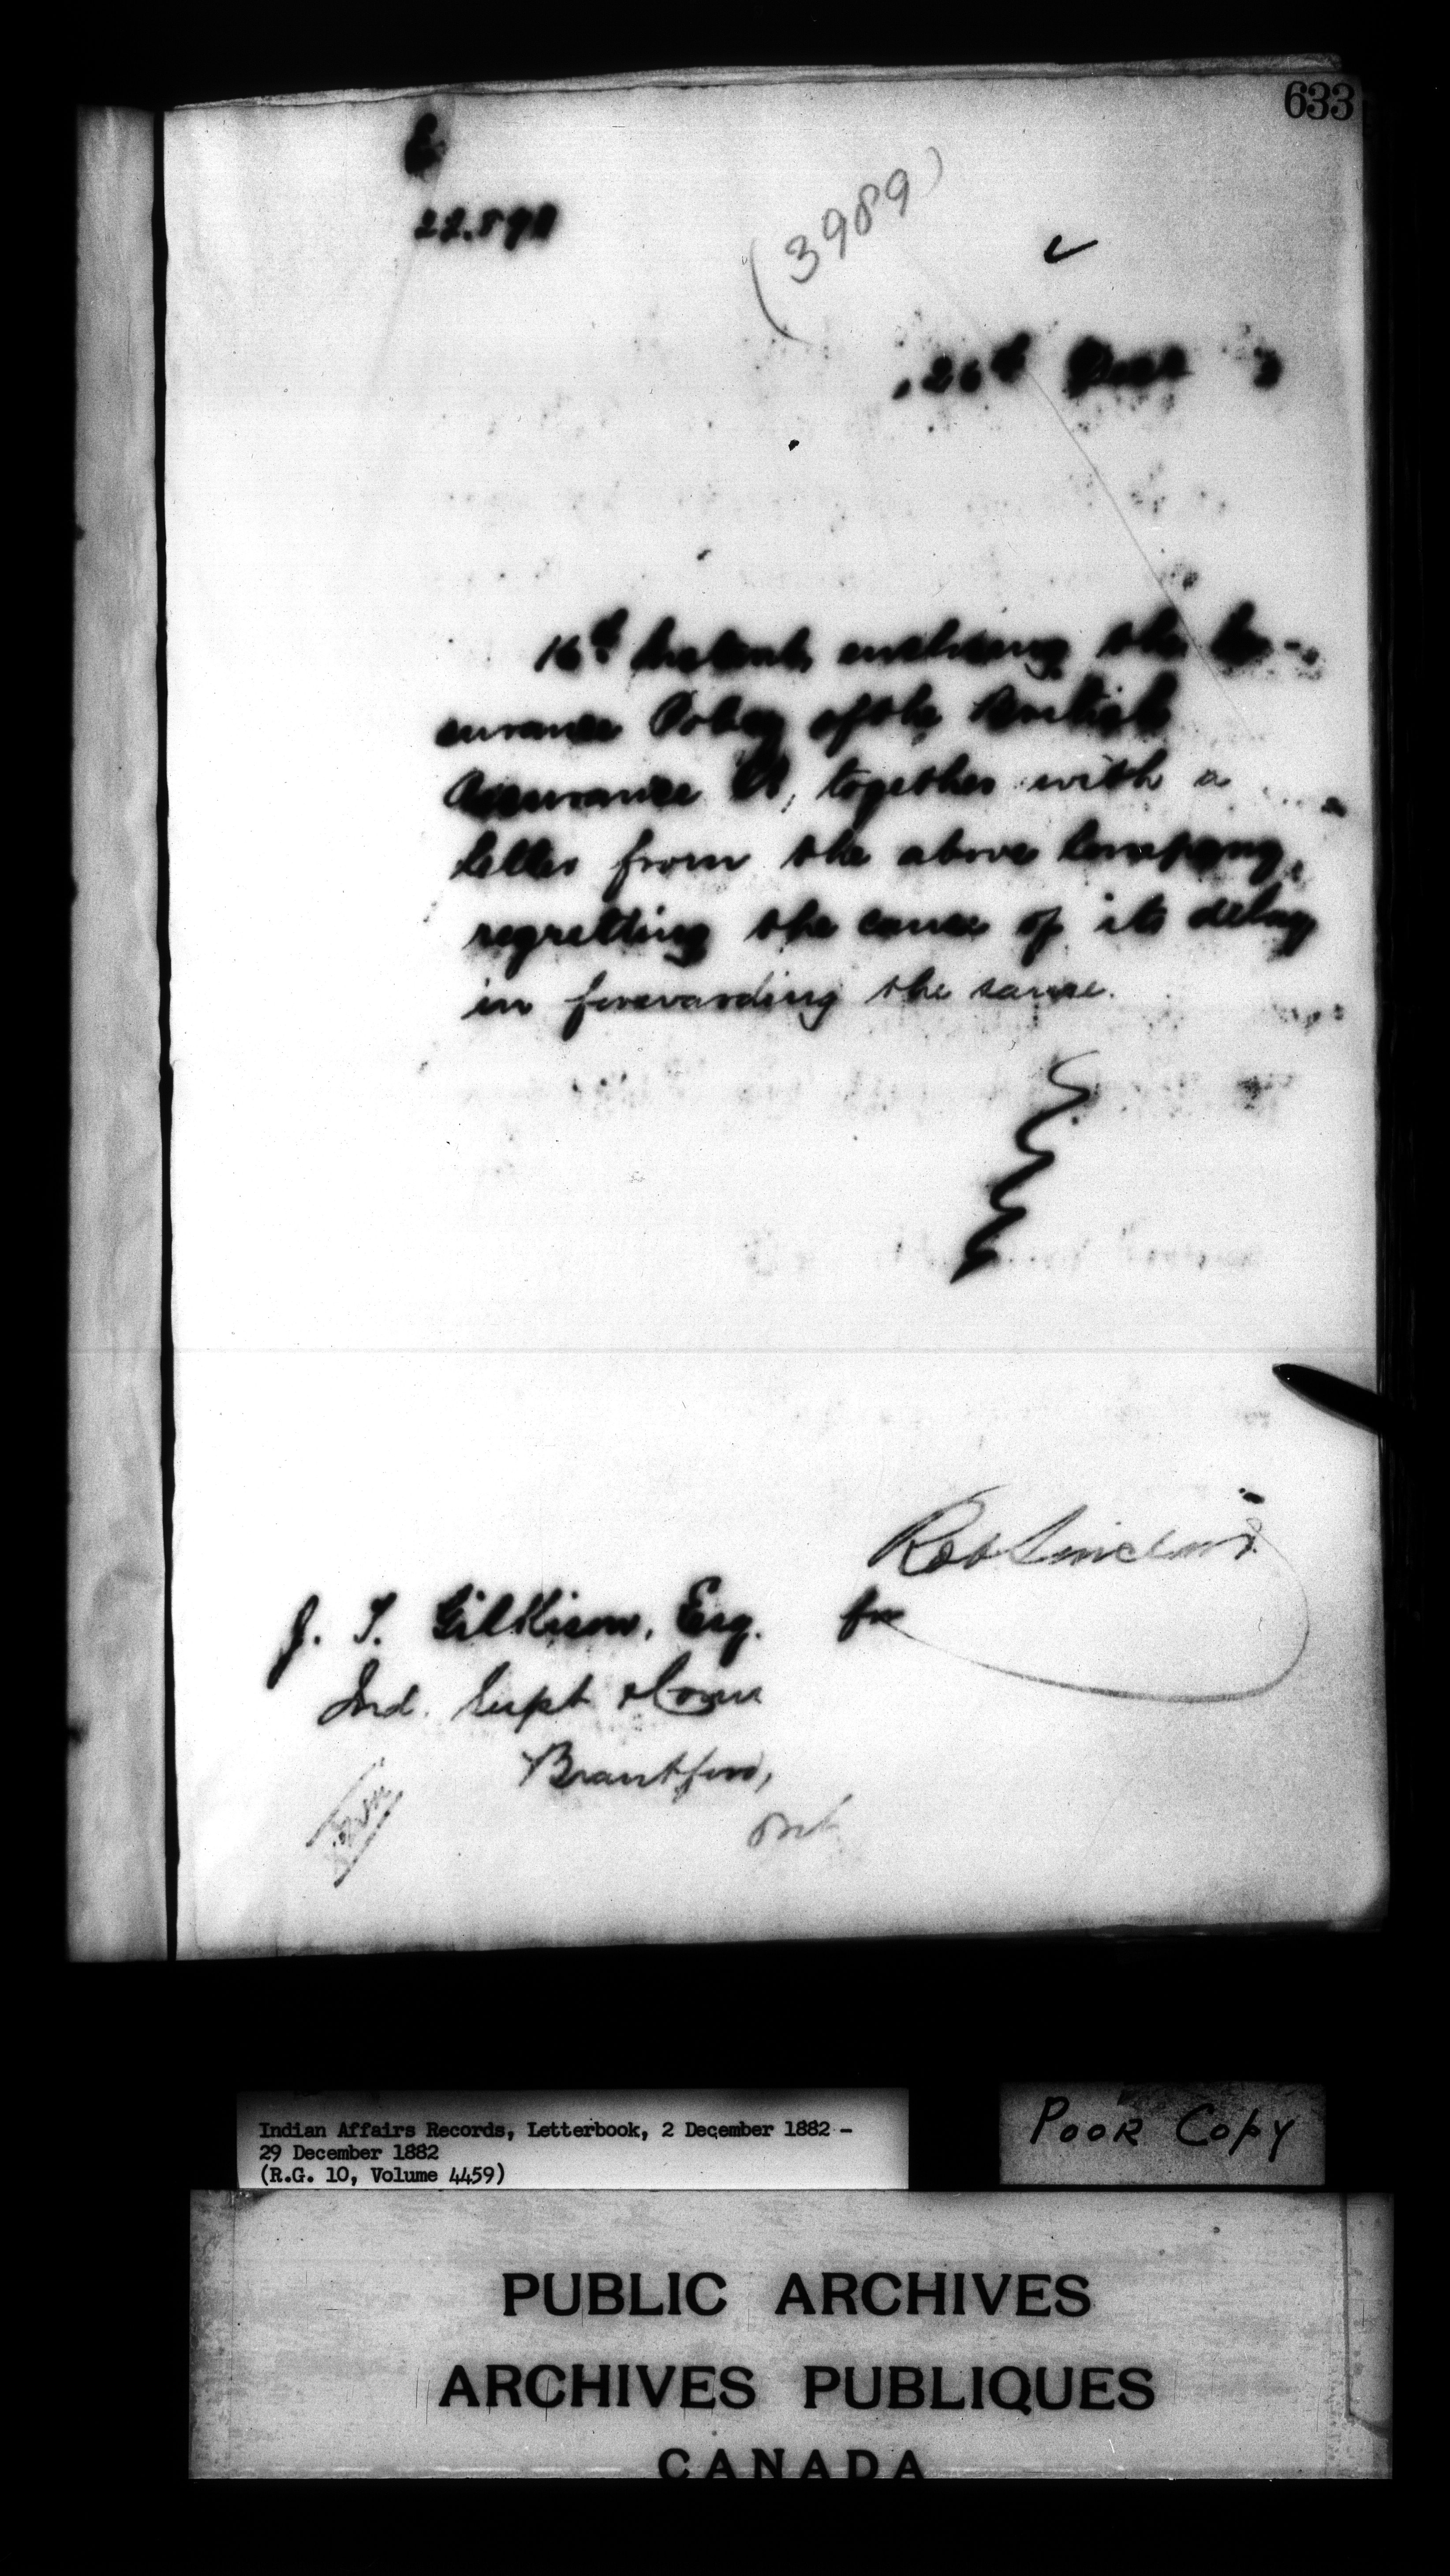 633
22.890
(3989)
26th Decr 2
16th Instant, enclosing the In-
surance Policy of the British
Assurance Co, together with a
letter from the above Company,
regretting the cause of its delay
in forwarding the same.
Robt Sinclair
for
J. T. Gilkison, Esq.
Ind. Supt & Comr
Brantford,
Ont
Indian Affairs Records, Letterbook, 2 December 1882 -
29 December 1882
(R.G. 10, Volume 4459)
POOR COPY
PUBLIC ARCHIVES
ARCHIVES PUBLIQUES
CANADA